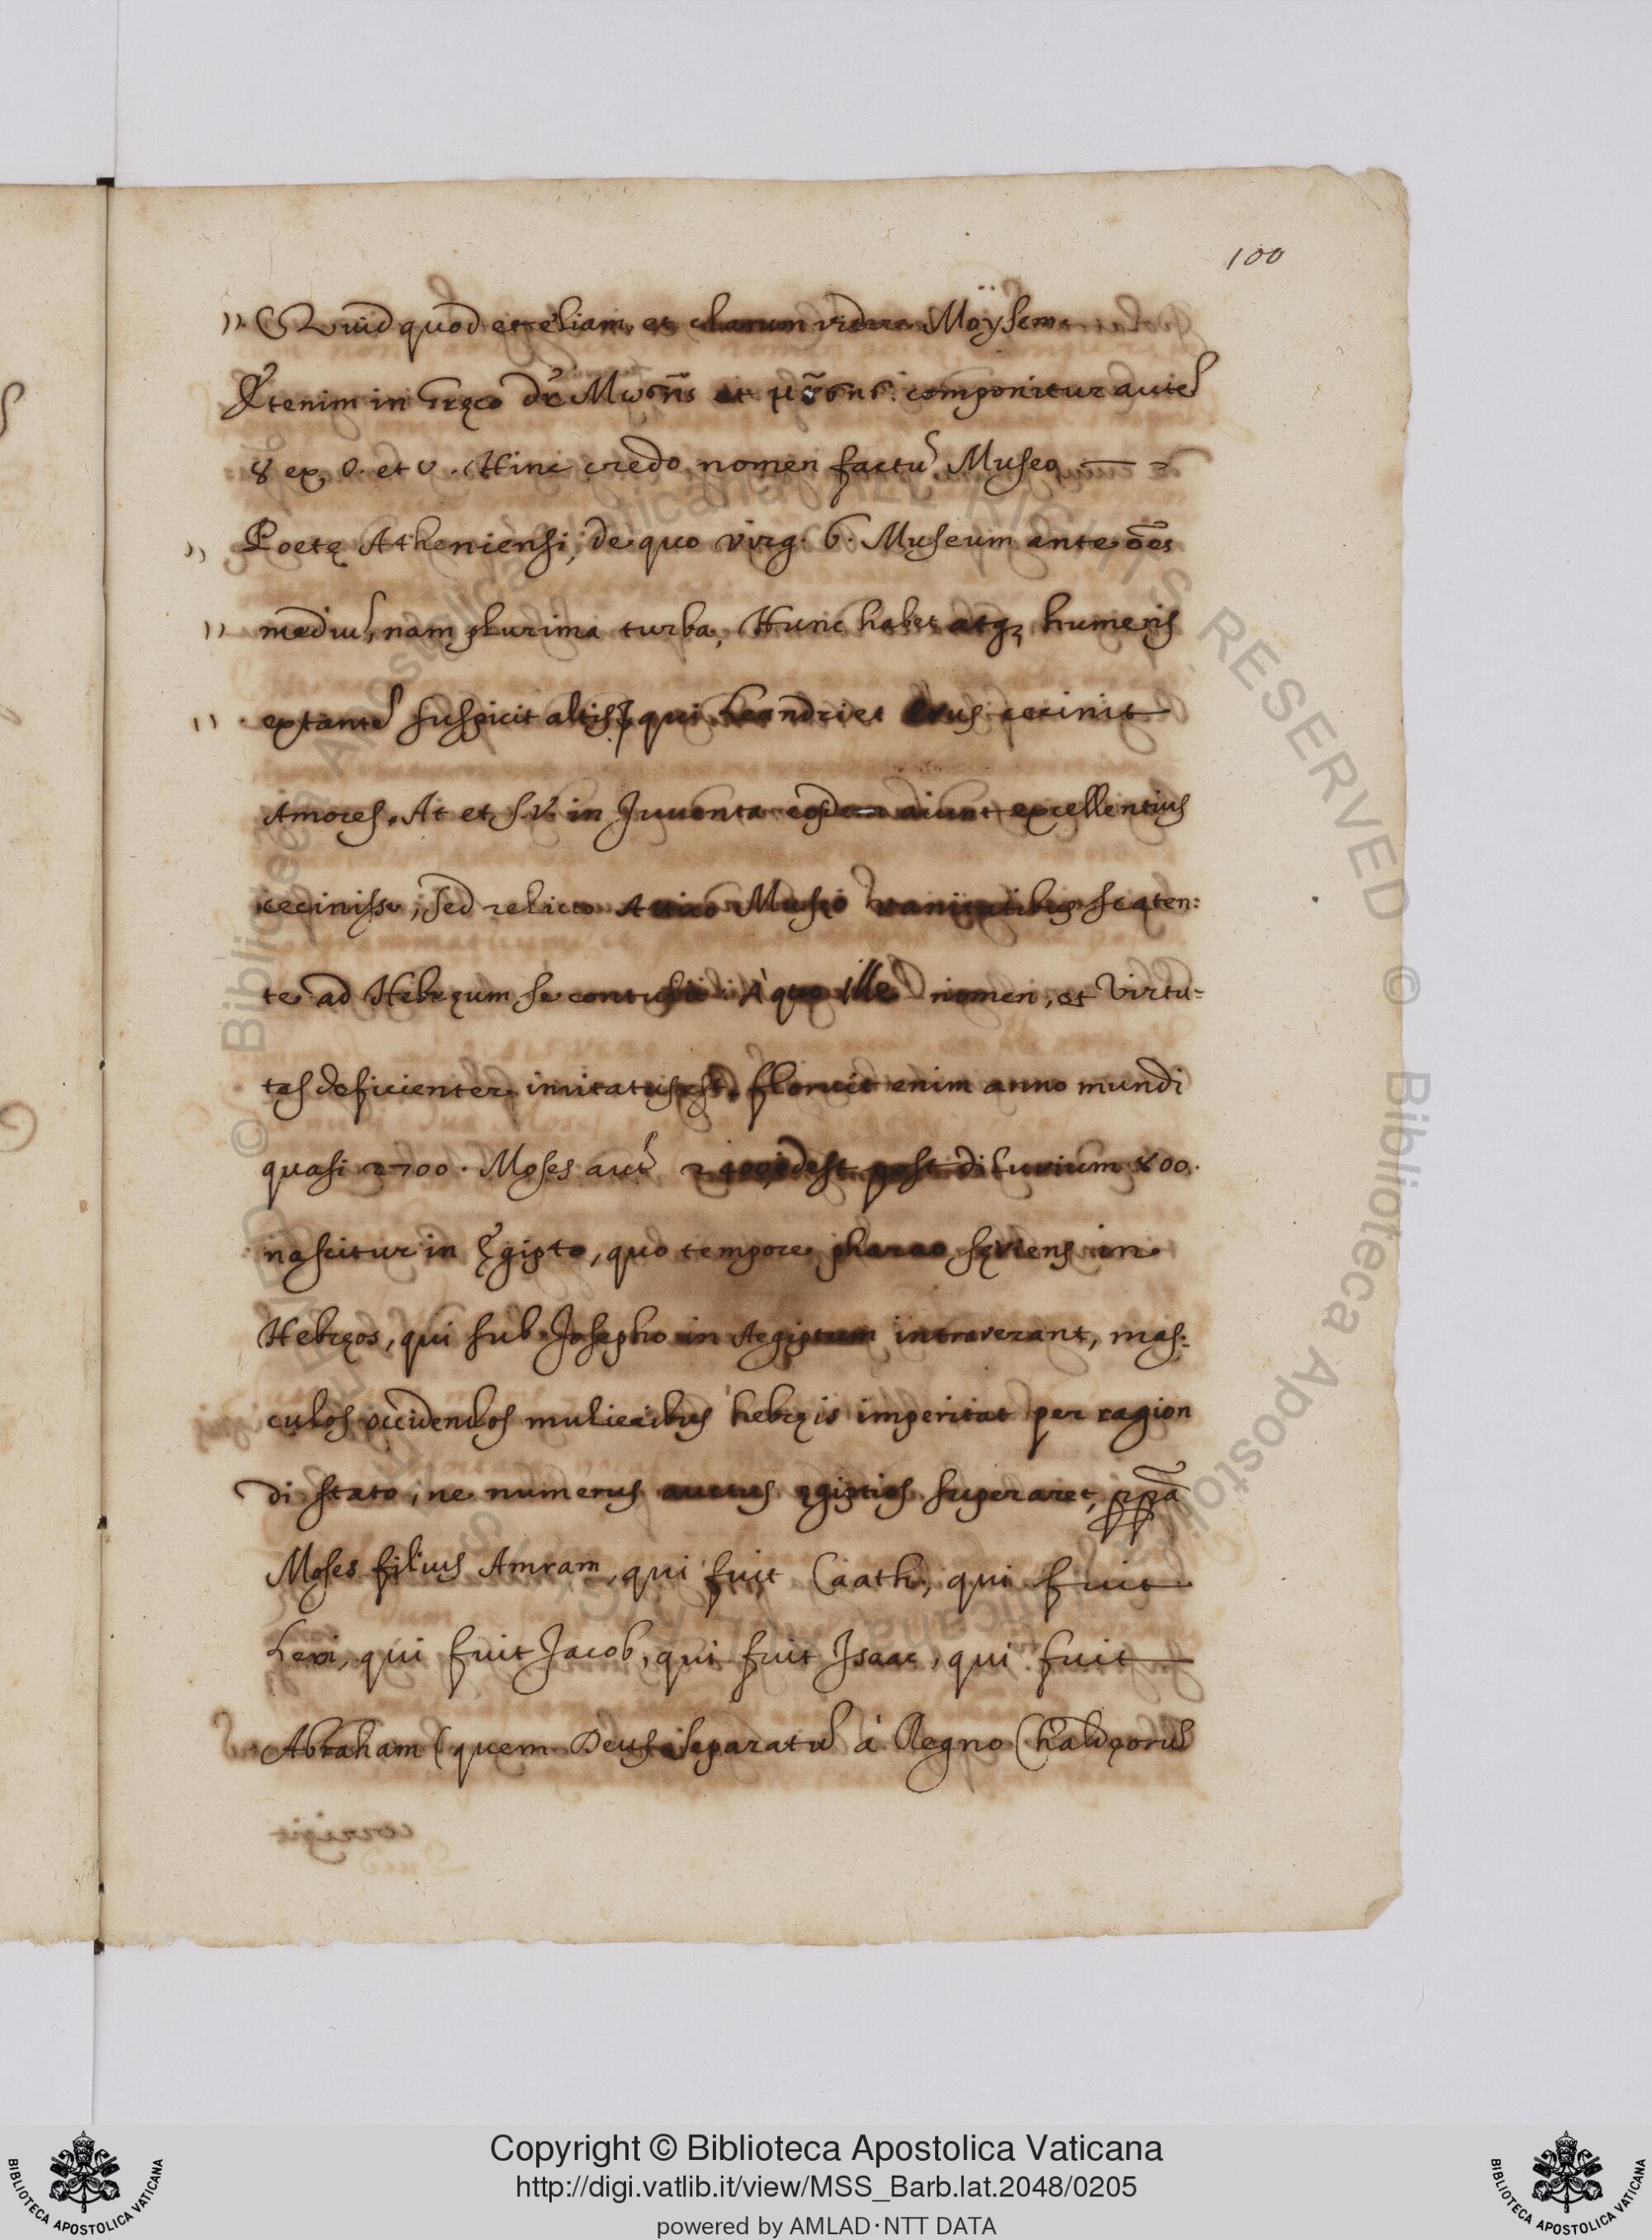 100
)). Quid quod et etiam, et clarum videre Moÿsem
Ętenim in Gręco dr̃ Mωσῆς et μȣ̃σης. componitur autẽ
ȣ ex, o. et v. Hinc credo nomen factũ Museo
)) Poetę Atheniensi, de quo Virg. 6. Museum ante oẽs
)) mediũ, nam plurima turba, Hunc habet atq3 humeris
)) extantẽ suspicit altis, qui Leandri et Erus cecinit
Amores. At et S.V. in Juventa eosdem aiunt excellentius
cecinisse; sed relicto Attico Museo vanitatibus scaten:
te ad Hebręum se contulit. À quo ille nomen, et Virtu=
tes deficienter imitatus est. floruit enim anno mundi
quasi 2700. Moses autẽ 2400, idest post diluvium 800.
nascitur in Ęgipto, quo tempore pharao sęviens in
Hebręos, qui sub Josepho in Aegiptum intraverant, mas:
culos occidendos mulieribus hebręis imperitat per ragion
di stato, ne numerus auctus ęgiptios superaret,
Moses filius Amram, qui fuit Caath, qui fuit
Levi, qui fuit Jacob, qui fuit Isaac, qui fuit
Abraham (quem Deus separatũ à Regno Chaldęorũ
© Biblioteca Apostolica Vaticana ALL RIGHTS RESERVED
Copyright © Biblioteca Apostolica Vaticana
http://digi.vatlib.it/view/MSS_Barb.lat.2048/0205
powered by AMLAD·NTT DATA
BIBLIOTECA APOSTOLICA VATICANA
BIBLIOTECA APOSTOLICA VATICANA